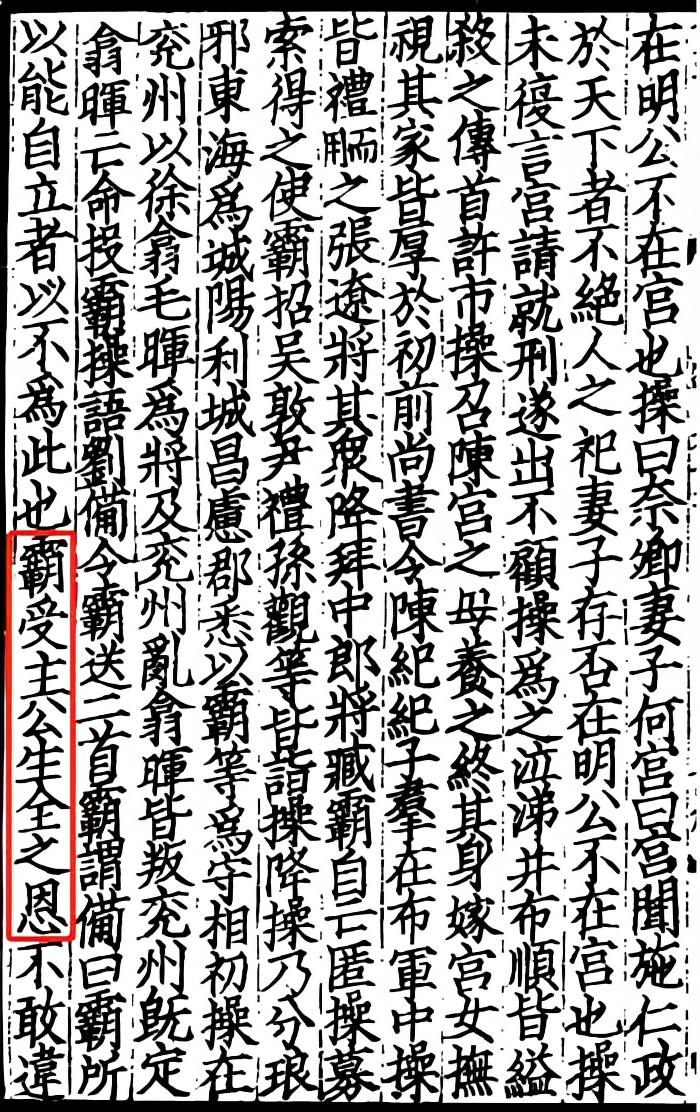 在明公不在宮也操曰奈卿妻子何宮曰宮聞施仁政
於天下者不絕人之祀妻子存否在明公不在宮也操
未復言宮請就刑遂出不顧操爲之泣涕并布順皆縊
殺之傳首許市操召陳宮之母養之終其身嫁宮女撫
視其家皆厚於初前尚書令陳紀紀子羣在布軍中操
皆禮用之張遼將其衆降拜中郎將臧霸自亡匿操募
索得之使霸招吴敦尹禮孫觀等皆詣操降操乃分琅
邪東海爲城陽利城昌慮郡悉以霸等爲守相初操在
兗州以徐翕毛暉爲將及兗州亂翕暉皆叛兗州既定
翕暉亡命投霸操語劉備令霸送二首霸謂備曰霸所
以能自立者以不為此也霸受主公生全之恩不敢違